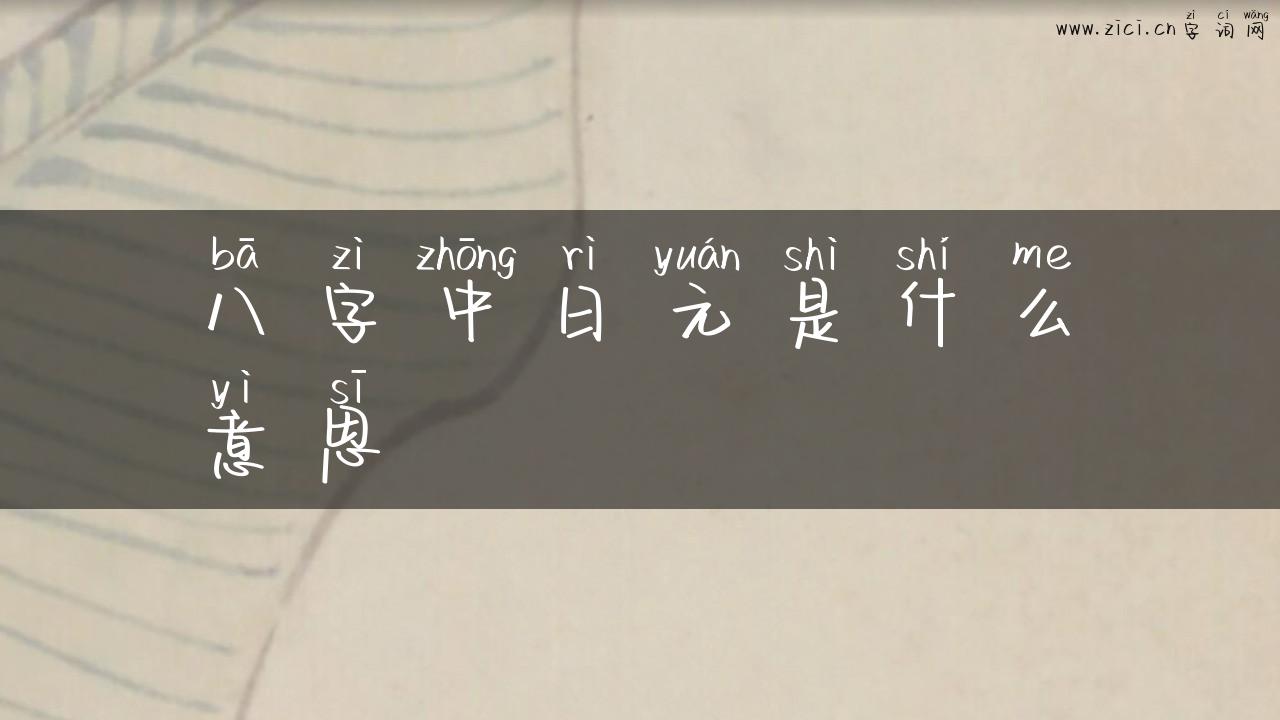 zì cí wǎng
www.zici.cn 字词网
bā zì zhōng rì yuán shì shí me
八字中日元是什么
yì sī
意思